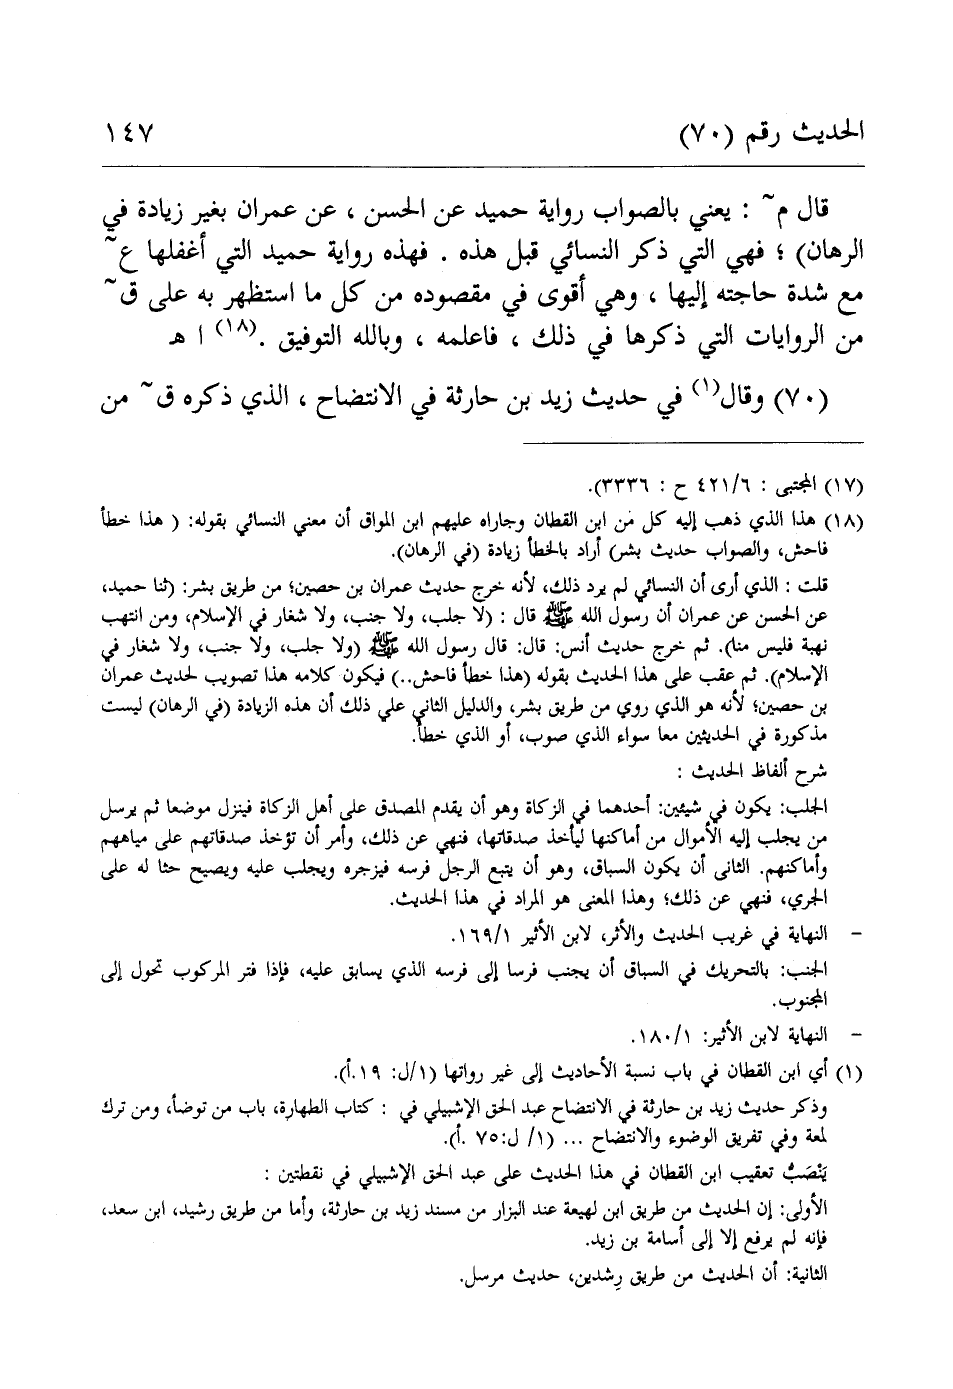 الحديث رقم (٧٠) ١٤٧
قال م~ : يعني بالصواب رواية حميد عن الحسن ، عن عمران بغير زيادة في
الرهان) ؛ فهي التي ذكر النسائي قبل هذه . فهذه رواية حميد التي أغفلها ع~
مع شدة حاجته إليها ، وهي أقوى في مقصوده من كل ما استظهر به على ق~
من الروايات التي ذكرها في ذلك ، فاعلمه ، وبالله التوفيق .(١٨) ا هـ
(٧٠) وقال(١) في حديث زيد بن حارثة في الانتضاح ، الذي ذكره ق~ من
(١٧) المجتبى : ٤٢١/٦ ح : ٣٣٣٦).
(١٨) هذا الذي ذهب إليه كل من ابن القطان وجاراه عليهم ابن المواق أن معني النسائي بقوله: ( هذا خطأ
فاحش، والصواب حديث بشر) أراد بالخطأ زيادة (في الرهان).
قلت : الذي أرى أن النسائي لم يرد ذلك، لأنه خرج حديث عمران بن حصين؛ من طريق بشر: (ثنا حميد،
عن الحسن عن عمران أن رسول الله ﷺ قال : (لا جلب، ولا جنب، ولا شغار في الإسلام، ومن انتهب
نهبة فليس منا). ثم خرج حديث أنس: قال: قال رسول الله ﷺ (ولا جلب، ولا جنب، ولا شغار في
الإسلام). ثم عقب على هذا الحديث بقوله (هذا خطأ فاحش..) فيكون كلامه هذا تصويب لحديث عمران
بن حصين؛ لأنه هو الذي روي من طريق بشر، والدليل الثاني علي ذلك أن هذه الزيادة (في الرهان) ليست
مذكورة في الحديثين معا سواء الذي صوب، أو الذي خطأ.
شرح ألفاظ الحديث :
الجلب: يكون في شيئين: أحدهما في الزكاة وهو أن يقدم المصدق على أهل الزكاة فينزل موضعا ثم يرسل
من يجلب إليه الأموال من أماكنها ليأخذ صدقاتها، فنهي عن ذلك، وأمر أن تؤخذ صدقاتهم على مياههم
وأماكنهم. الثانى أن يكون السباق، وهو أن يتبع الرجل فرسه فيزجره ويجلب عليه ويصيح حثا له على
الجري، فنهي عن ذلك؛ وهذا المعنى هو المراد في هذا الحديث.
– النهاية في غريب الحديث والأثر، لابن الأثير ١٦٩/١.
الجنب: بالتحريك في السباق أن يجنب فرسا إلى فرسه الذي يسابق عليه، فإذا فتر المركوب تحول إلى
المجنوب.
– النهاية لابن الأثير: ١٨٠/١.
(١) أي ابن القطان في باب نسبة الأحاديث إلى غير رواتها (١/ل: ١٩.أ).
وذكر حديث زيد بن حارثة في الانتضاح عبد الحق الإشبيلي في : كتاب الطهارة، باب من توضأ، ومن ترك
لمعة وفي تفريق الوضوء والانتضاح ... (١/ ل:٧٥ .أ).
يَنْصَبُّ تعقيب ابن القطان في هذا الحديث على عبد الحق الإشبيلي في نقطتين :
الأولى: إن الحديث من طريق ابن لهيعة عند البزار من مسند زيد بن حارثة، وأما من طريق رشيد، ابن سعد،
فإنه لم يرفع إلا إلى أسامة بن زيد.
الثانية: أن الحديث من طريق رِشدين، حديث مرسل.